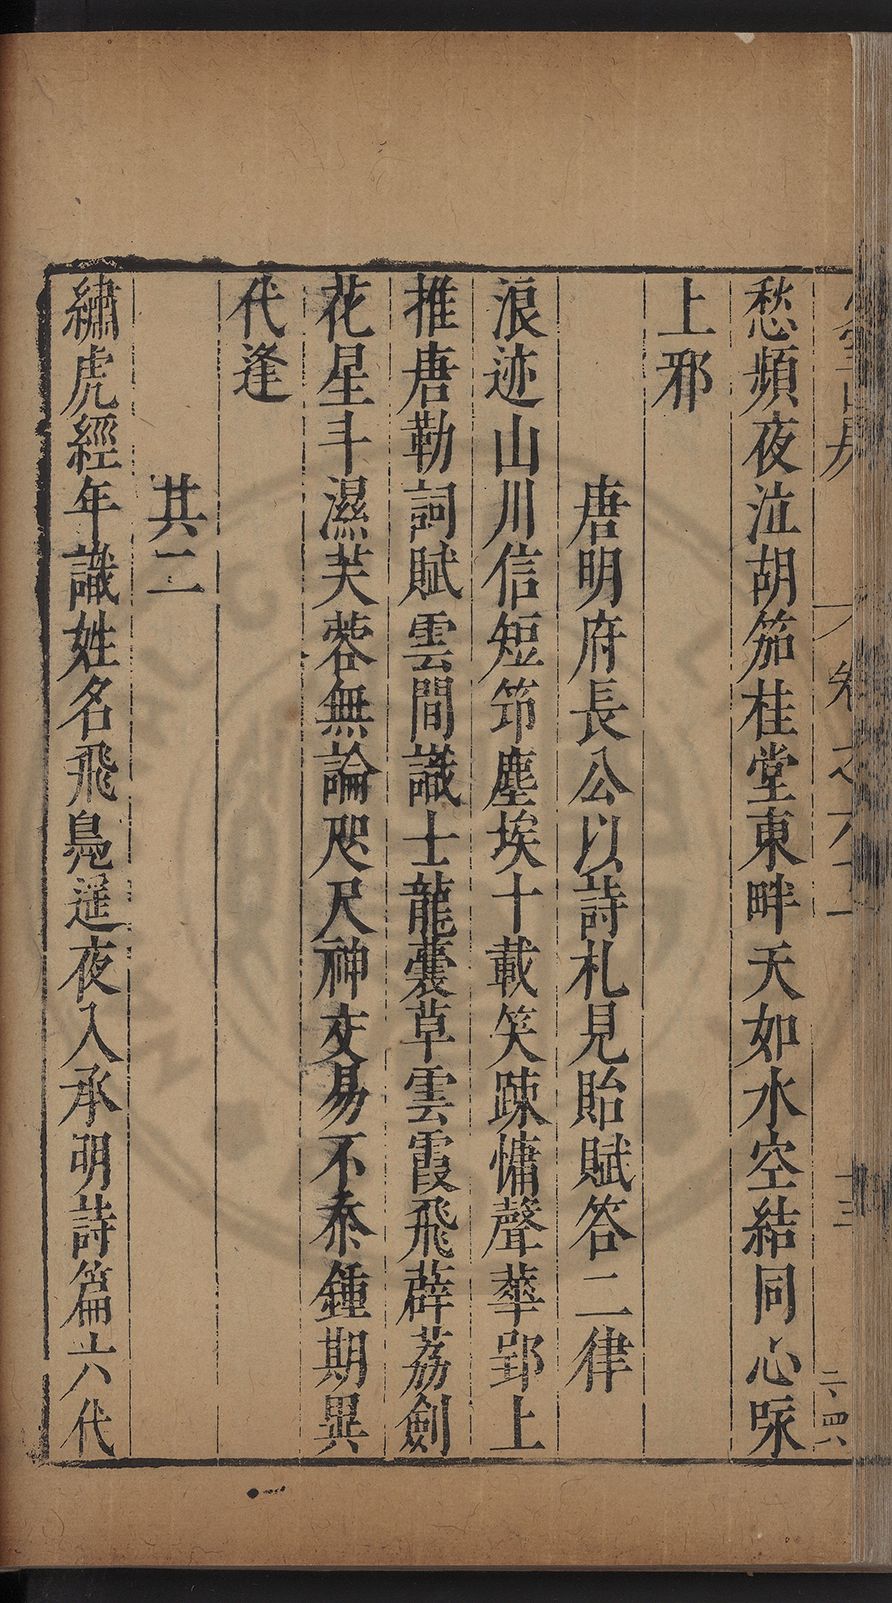 卷之六十
十三
二、四六
愁頻夜泣胡笳桂堂東畔天如水空結同心咏
上邪
唐明府長公以詩札見貽賦答二律
浪迹山川信短笻塵埃十載笑疎慵聲華郢上
推唐勒詞賦雲間識士龍囊草雲霞飛薜荔劍
花星斗濕芙蓉無論咫尺神交易不忝鍾期異
代逢
其二
繡虎經年識姓名飛鳧遥夜入承明詩篇六代